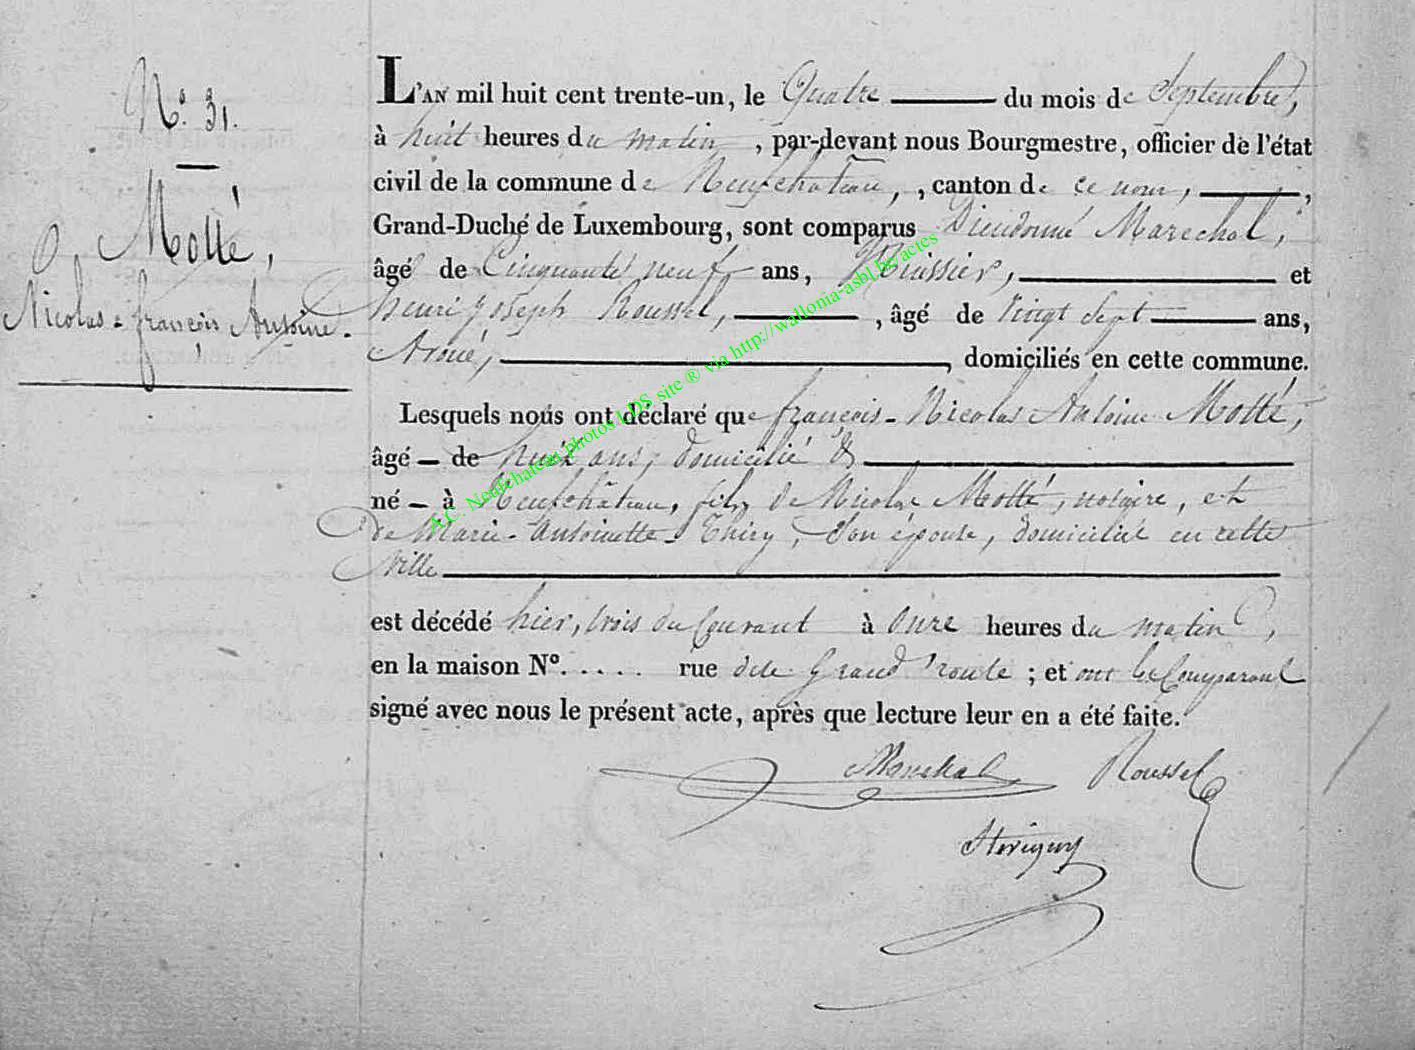 N.° 31.
Motté,
Nicolas-françois Antoine.
L'AN mil huit cent trente-un, le Quatre du mois de Septembre,
à huit heures du matin, par-devant nous Bourgmestre, officier de l'état
civil de la commune de Neufchateau, , canton de ce nom, ,
Grand-Duché de Luxembourg, sont comparus Dieudonné Marechal,
âgé de Cinquante neuf ans, Huissier, et
henri joseph Roussel, , âgé de Vingt Sept ans,
Avoué, , domiciliés en cette commune.
Lesquels nous ont déclaré que françois-Nicolas Antoine Motté,
âgé — de huit ans, domicilié &
né — à Neufchâteau, fils de Nicolas Motté, notaire, et
de Marie-Antoinette Thiry, son épouse, domicilié en cette
Ville
est décédé hier, trois du Courant à Onze heures du matin,
en la maison N°. . . . . rue de la Grand'route ; et ont les Comparans
signé avec nous le présent acte, après que lecture leur en a été faite.
Marechal Roussel
A.C. Neufchateau photos LDS site ® via http://wallonia-asbl.be/actes